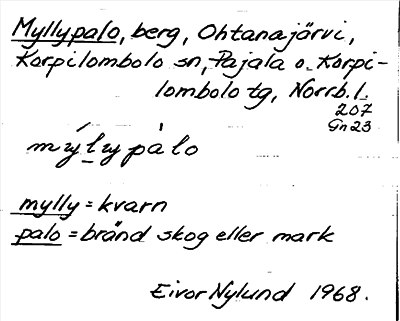 Myllypalo, berg, Ohtanajärvi,
Korpilombolo sn, Pajala o. Korpi-
lombolo tg, Norrb. l.
207
Gn 23
mýlypàlo
mylly = kvarn
palo = bränd skog eller mark
Eivor Nylund 1968.